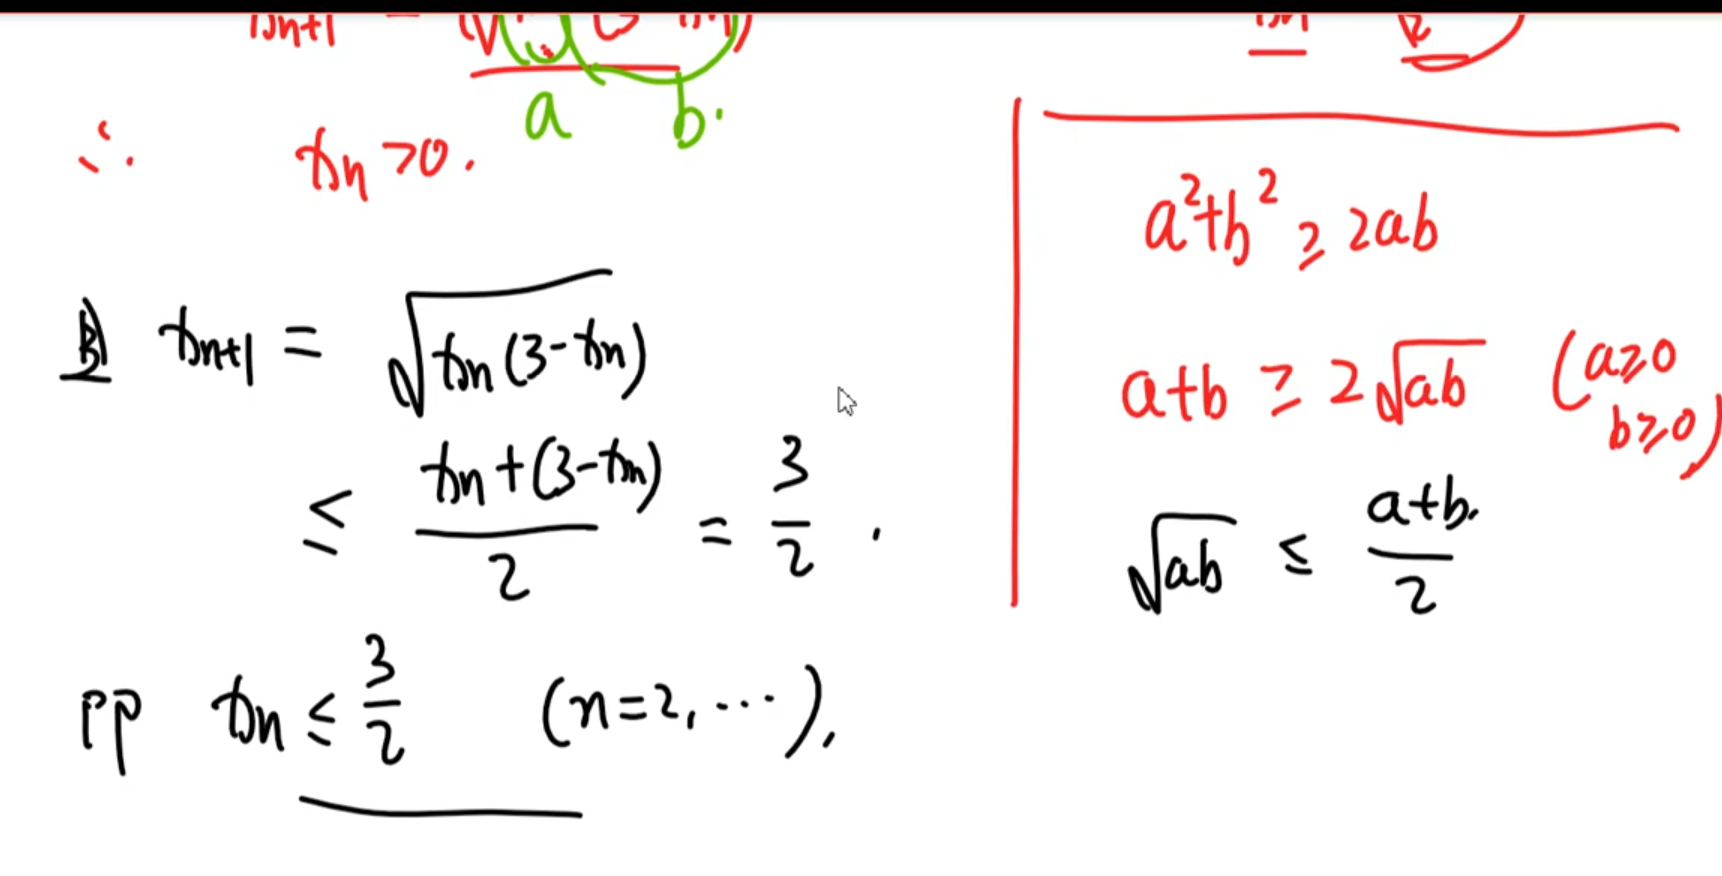 a b.
∴ xn >0.
且 xn+1 = √xn(3-xn)
≤ xn+(3-xn)/2 = 3/2 .
即 xn ≤ 3/2 (n=2, ⋯),
a²+b² ≥ 2ab
a+b ≥ 2√ab (a≥0 b≥0)
√ab ≤ a+b./2